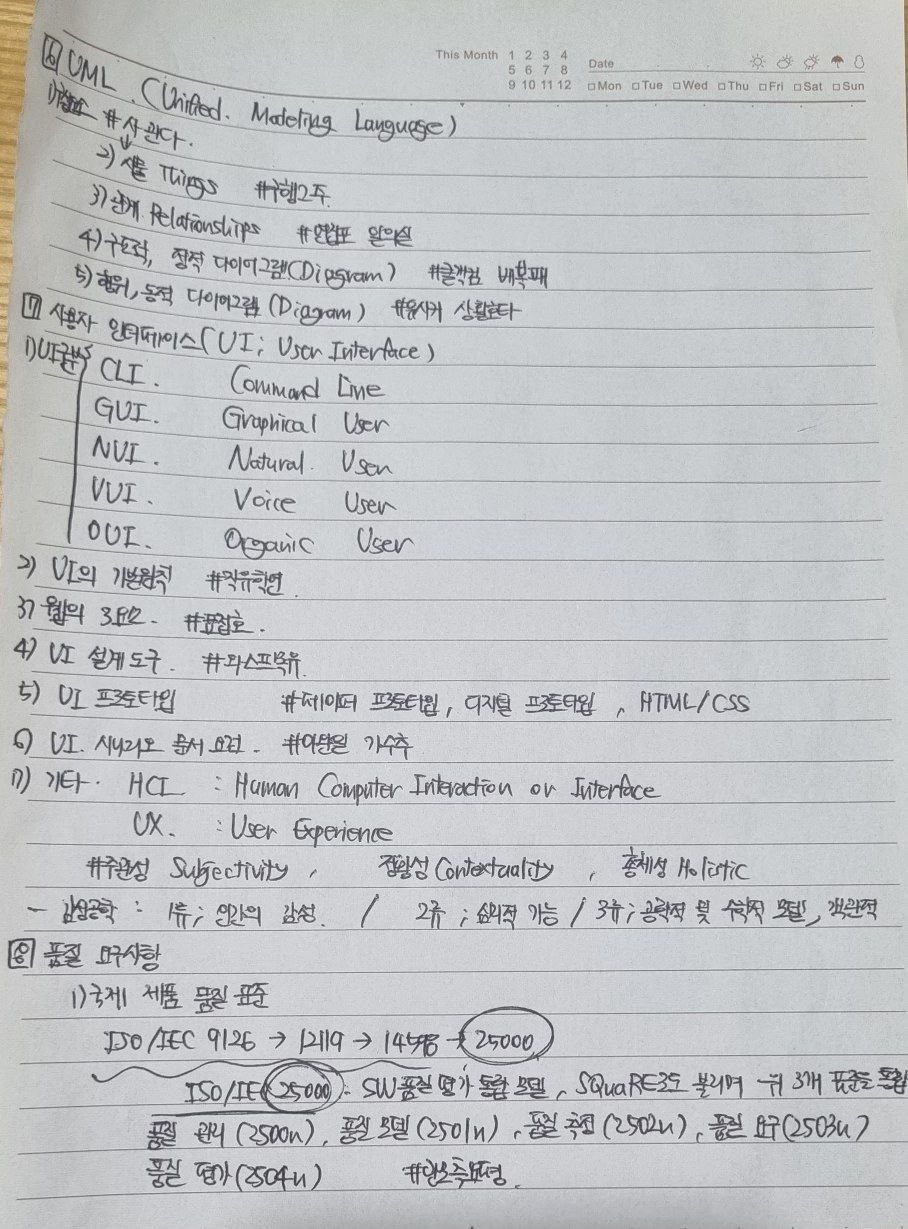 This Month 1 2 3 4
5 6 7 8
9 10 11 12
Date
Mon Tue Wed Thu Fri Sat Sun
6 UML. (Unified. Modeling Language)
1) #사 관다.
2) 사물 Things #구행그주.
3) 관계 Relationships #연집포 일의실
4) 구조적, 정적 다이어그램(Diagram) #클객컴 배복패
5) 행위, 동적 다이어그램 (Diagram) #유시커 상활호타
7 사용자 인터페이스(UI; User Interface)
1) UI구분
CLI. Command Line
GUI. Graphical User
NUI. Natural. User
VUI. Voice User
OUI. Organic User
2) UI의 기본원칙 #직유학연.
3) 웹의 3요소. #표접호.
4) UI 설계도구. #와스프목유.
5) UI 프로토타입 #페이퍼 프로토타입, 디지털 프로토타입, HTML/CSS
6) UI. 시나리오 문서 요건. #완일 가수추
7) 기타. HCI : Human Computer Interaction or Interface
UX. : User Experience
#주관성 Subjectivity, 정황성 Contextuality, 총체성 Holistic
- 감성공학 : 1류; 인간의 감성. / 2류; 심리적 기능 / 3류; 공학적 및 수학적 모델, 객관적
8 품질 요구사항
1) 국제 제품 품질 표준
ISO/IEC 9126 → 12119 → 14598 → 25000
ISO/IEC 25000 : SW 품질 평가 통합 모델, SQuaRE로도 불리며 위 3개 표준을 통합
품질 관리 (2500n), 품질 모델 (2501n), 품질 측정 (2502n), 품질 요구(2503n)
품질 평가(2504n)